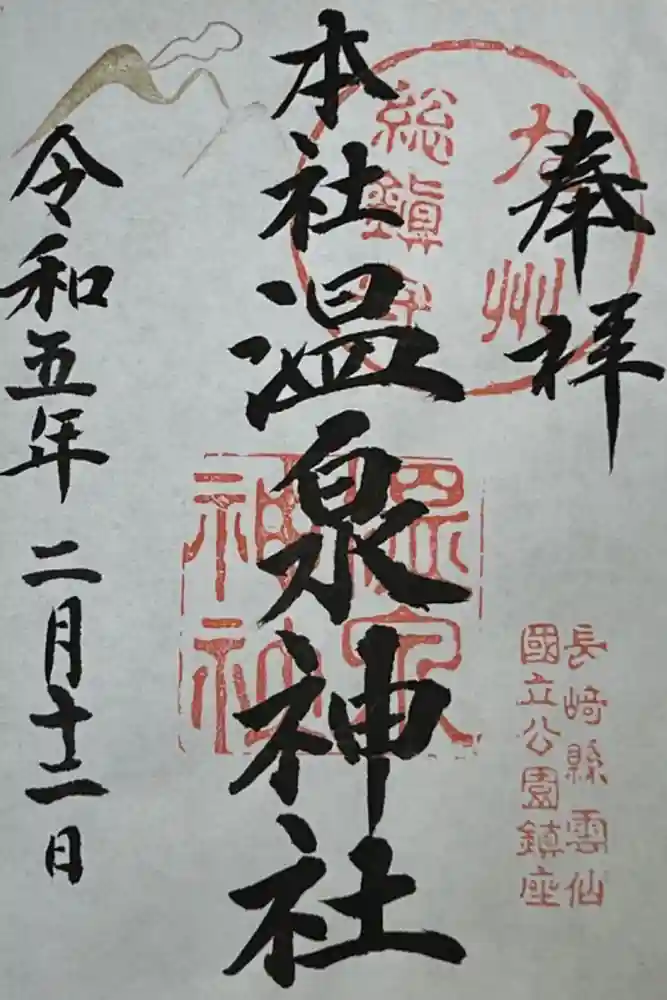 奉拝
九州
総鎮守
長崎縣雲仙
國立公園鎮座
本社温泉神社
温泉
神社
令和五年二月十二日